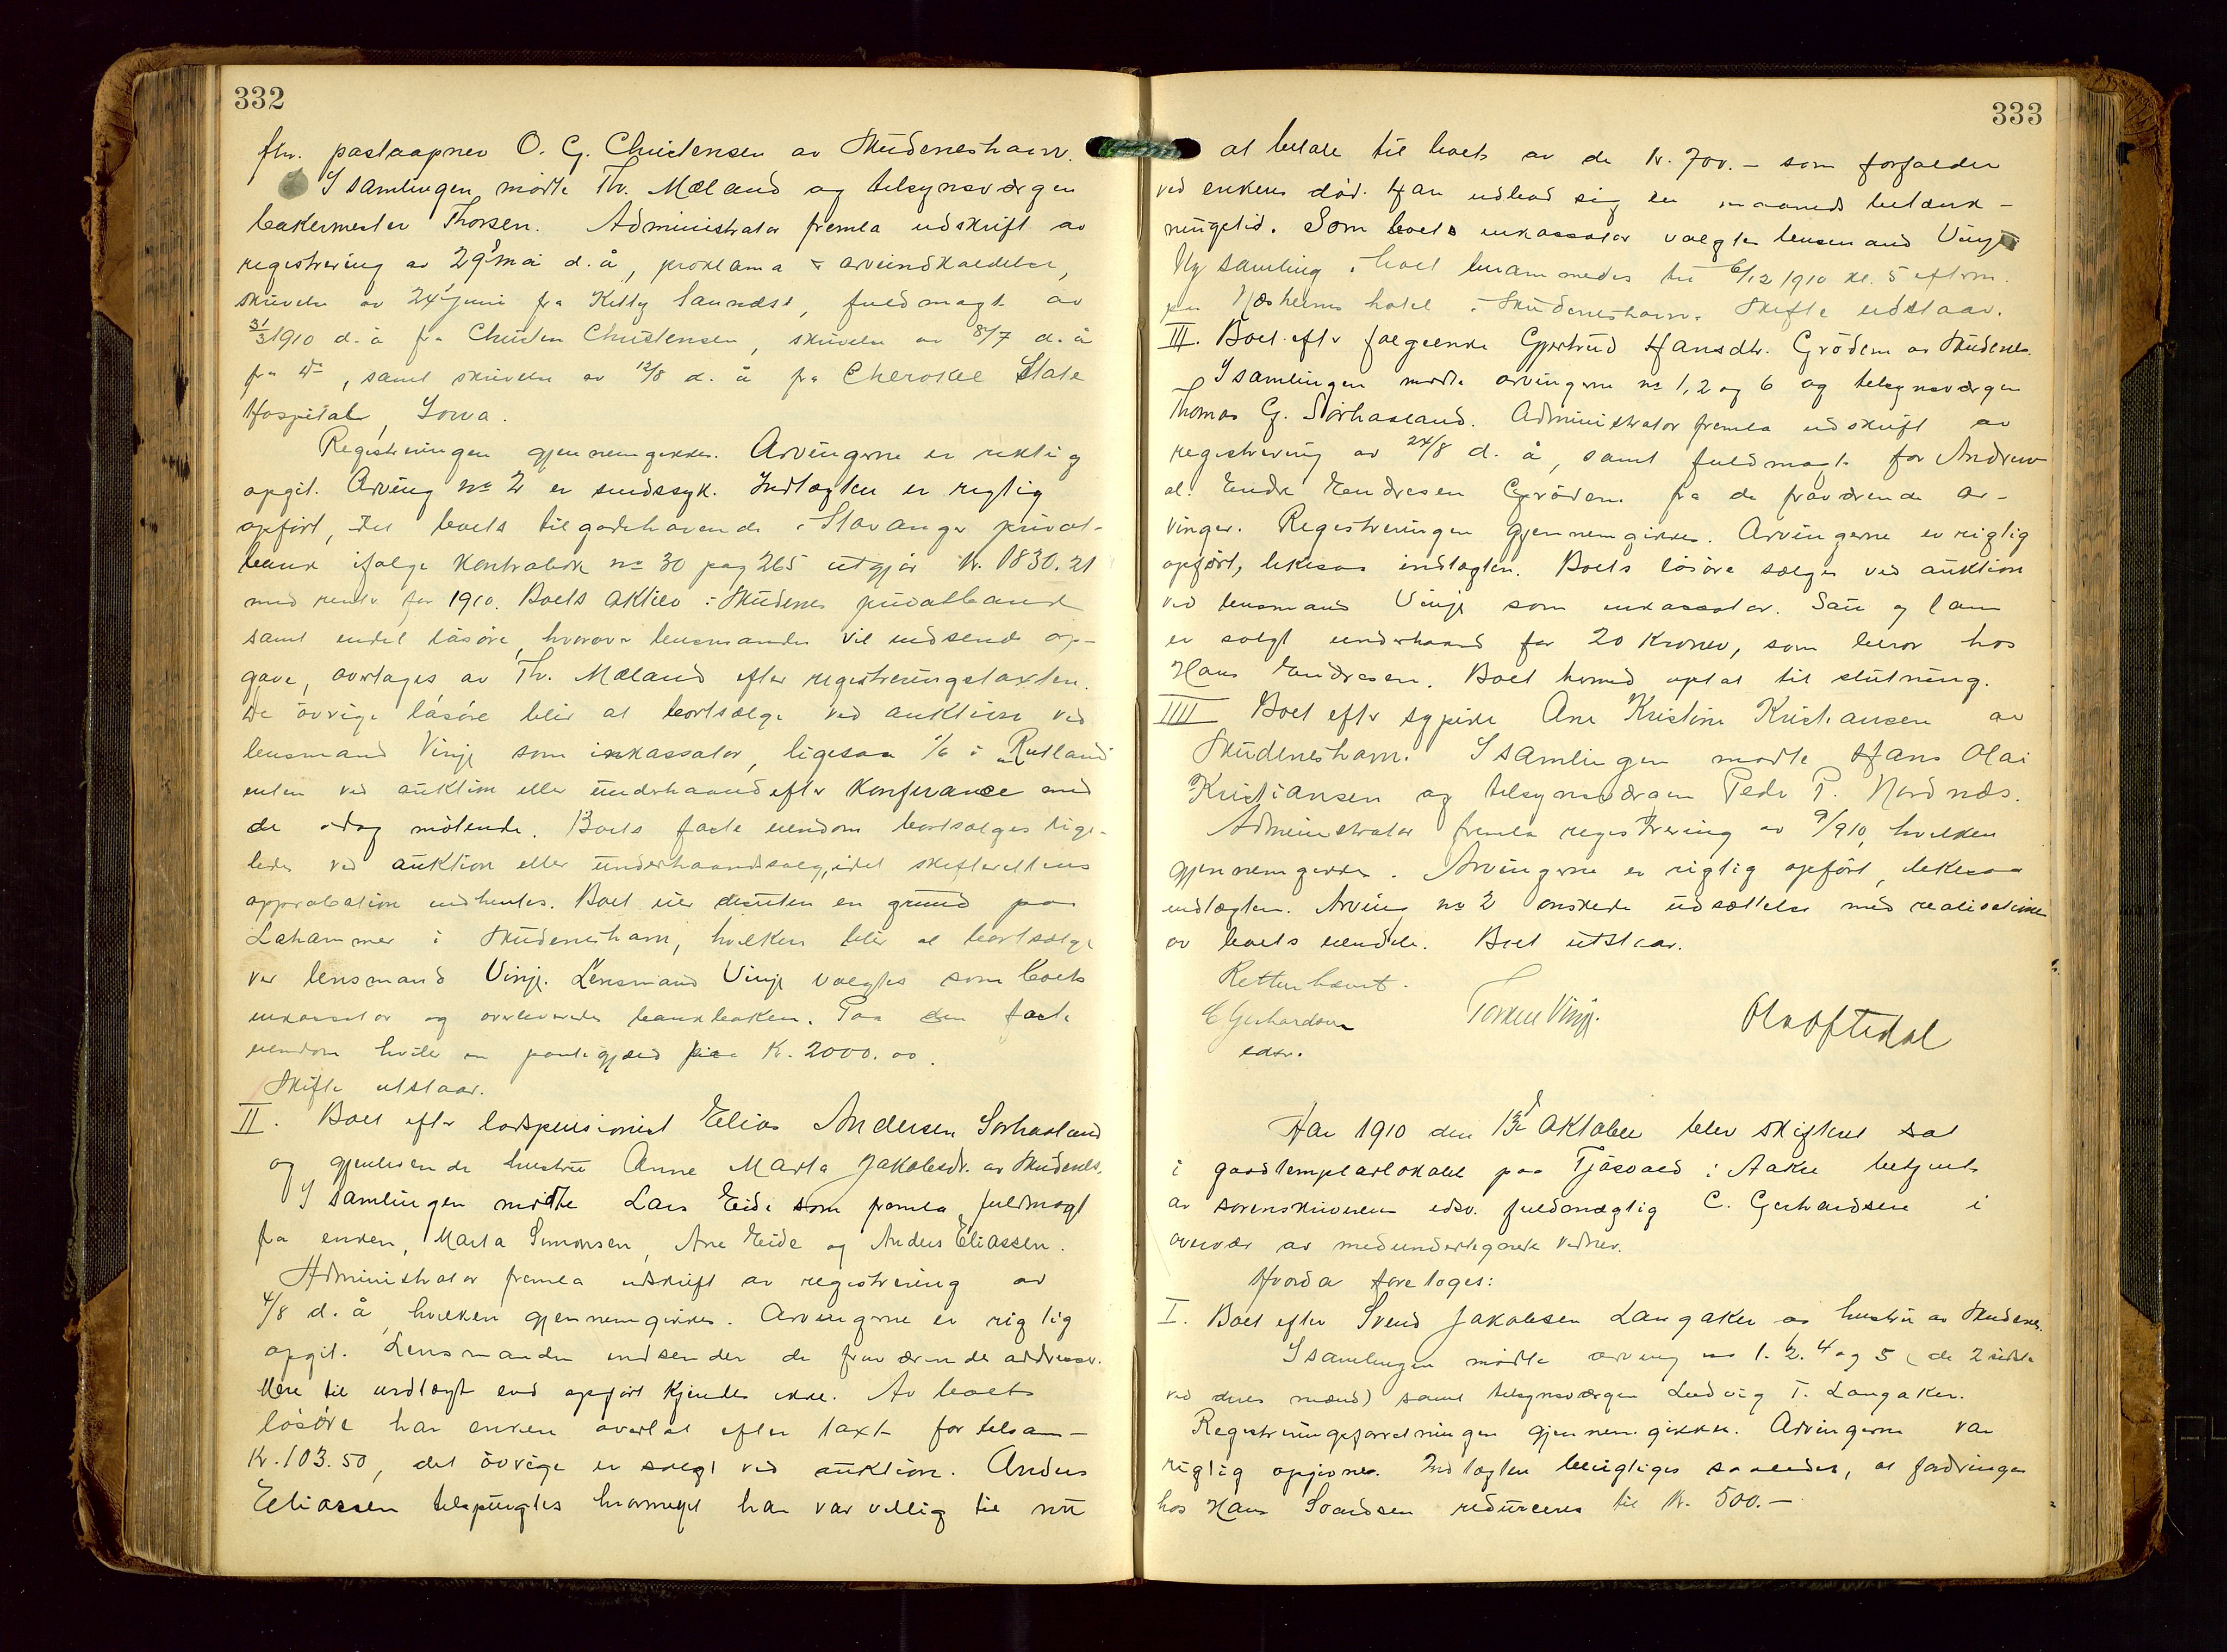 332
fhv. postaapner O. G. Christensen av Skudeneshavn.
I samlingen mødte Th. Mæland og tilsynsværgen
bakermester Thorsen. Administrator fremla udskrift av
registrering av 29' mai d. å, proklama & arveindkaldelse,
skrivelse av 24' juni fra Kitty, fuldmagt av
31/3 1910 d. å fra Christen Christensen, skrivelse av 8/7 d. å
fra Do, samt skrivelse av 12/8 d. å fra Cherokee State
Hospital, Iowa.
Registreringen gjennemgikkes. Arvingerne er riktig
opgit. Arving no 2 er sindssyk. Indtægten er rigtig
opført, idet boets tilgodehavende i Stavanger privat-
bank ifølge Kontrabok no 30 pag 265 utgjør kr. 1830.21
med renter for 1910. Boets aktier i Skudenes privatbank
samt endel løsøre, hvorover lensmanden vil indsende op-
gave, overtages av Th. Mæland efter registreringstaxten.
De övrige løsöre blir at bortsælge ved auktion ved
lensmand Vinje som inkassator, ligesaa 1/6 i "Rutland"
enten ved auktion eller underhaand efter Konferance med
de idag mötende. Boets faste eiendom bortsælges lige-
ledes ved auktion eller underhaandssalg, idet skifterettens
approbation indhentes. Boet eier desuten en grund paa
Lahammer i Skudeneshavn, hvilken blir at bortsælge
ved lensmand Vinje. Lensmand Vinje valgtes som boets
inkassator og overleveredes bankboken. Paa den faste
eiendom hviler en pantegjæld paa Kr. 2000.00.
Skifte utstaar.
II. Boet efter lodspensionist Elias Andersen Sørhaaland
og gjenlevende hustru Anne Marta Jakobsdr. av Skudenes.
I samlingen mødte Lars Eide som fremla fuldmagt
fra enken, Marta Simonsen, Ane Eide og Anders Eliassen.
Administrator fremla udskrift av registrering av
4/8 d. å, hvilken gjennemgikkes. Arvingerne er rigtig
opgit. Lensmanden indsender de fraværendes addresser.
Mere til indtægt end opført kjendes ikke. Av boets
lösöre har enken overtat efter taxt for tilsam-
Kr. 103.50, det övrige er solgt ved auktion. Anders
Eliassen tilspurgtes hvormeget han var villig til nu
333
at betale til boets av de kr. 700.- som forfalder
ved enkens død. Han udbad sig en maaneds betænk-
ningstid. Som boets inkassator valgtes lensmand Vinje
Ny samling i boet berammedes til 6/12 1910 kl. 5 efterm.
paa Næsheims hotel i Skudeneshavn. Skifte udstaar.
III. Boet efter følgeenke Gjertrud Hansdtr. Grödem av Skudenes.
I samlingen mødte arvingerne no 1, 2 og 6 og tilsynsværgen
Thomas G. Sörhaaland. Administrator fremla udskrift av
registrering av 24/8 d. å, samt fuldmagt for Andrew
al. Endre Endresen Grödem fra de fraværende ar-
vinger. Registreringen gjennemgikkes. Arvingerne er rigtig
opført, likesaa indtægten. Boets løsöre sælges ved auktion
ved lensmand Vinje som inkassator. Sau og lam
er solgt underhaand for 20 Kroner, som beror hos
Hans Endresen. Boet hermed optat til slutning.
IIII Boet efter sypike Ane Kristine Kristiansen av
Skudeneshavn. I samlingen mødte Hans Olai
Kristiansen og tilsynsværgen Peder P. Nordnæs.
Administrator fremla registrering av 9/9 10, hvilken
gjennemgikkes. Arvingerne er rigtig opført, likesaa
indtægten. Arving no 2 ønskede udsættelse med realisationen
av boets eiendele. Boet utstaar.
Retten hævet.
C Gerhardsen Torkel Vinje. Ola Oftedal
edsv.
Aar 1910 den 13de Oktober blev skifteret sat
i goodtemplarlokalet paa Tjøsvold i Aakre betjent
av sorenskriverens edsv. fuldmægtig C. Gerhardsen i
overvær av medundertegnede vidner.
Hvorda foretoges:
I. Boet efter Svend Jakobsen Langaker og hustru av Skudenes.
I samlingen mødte arving no 1. 2. 4 og 5 (de 2 sidste
ved deres mænd) samt tilsynsværgen Ludvig T. Langaker.
Registreringsforretningen gjennemgikkes. Arvingerne var
rigtig opgivne. Indtægten berigtiges saaledes, at fordringen
hos Hans Svendsen reduceres til Kr. 500.-